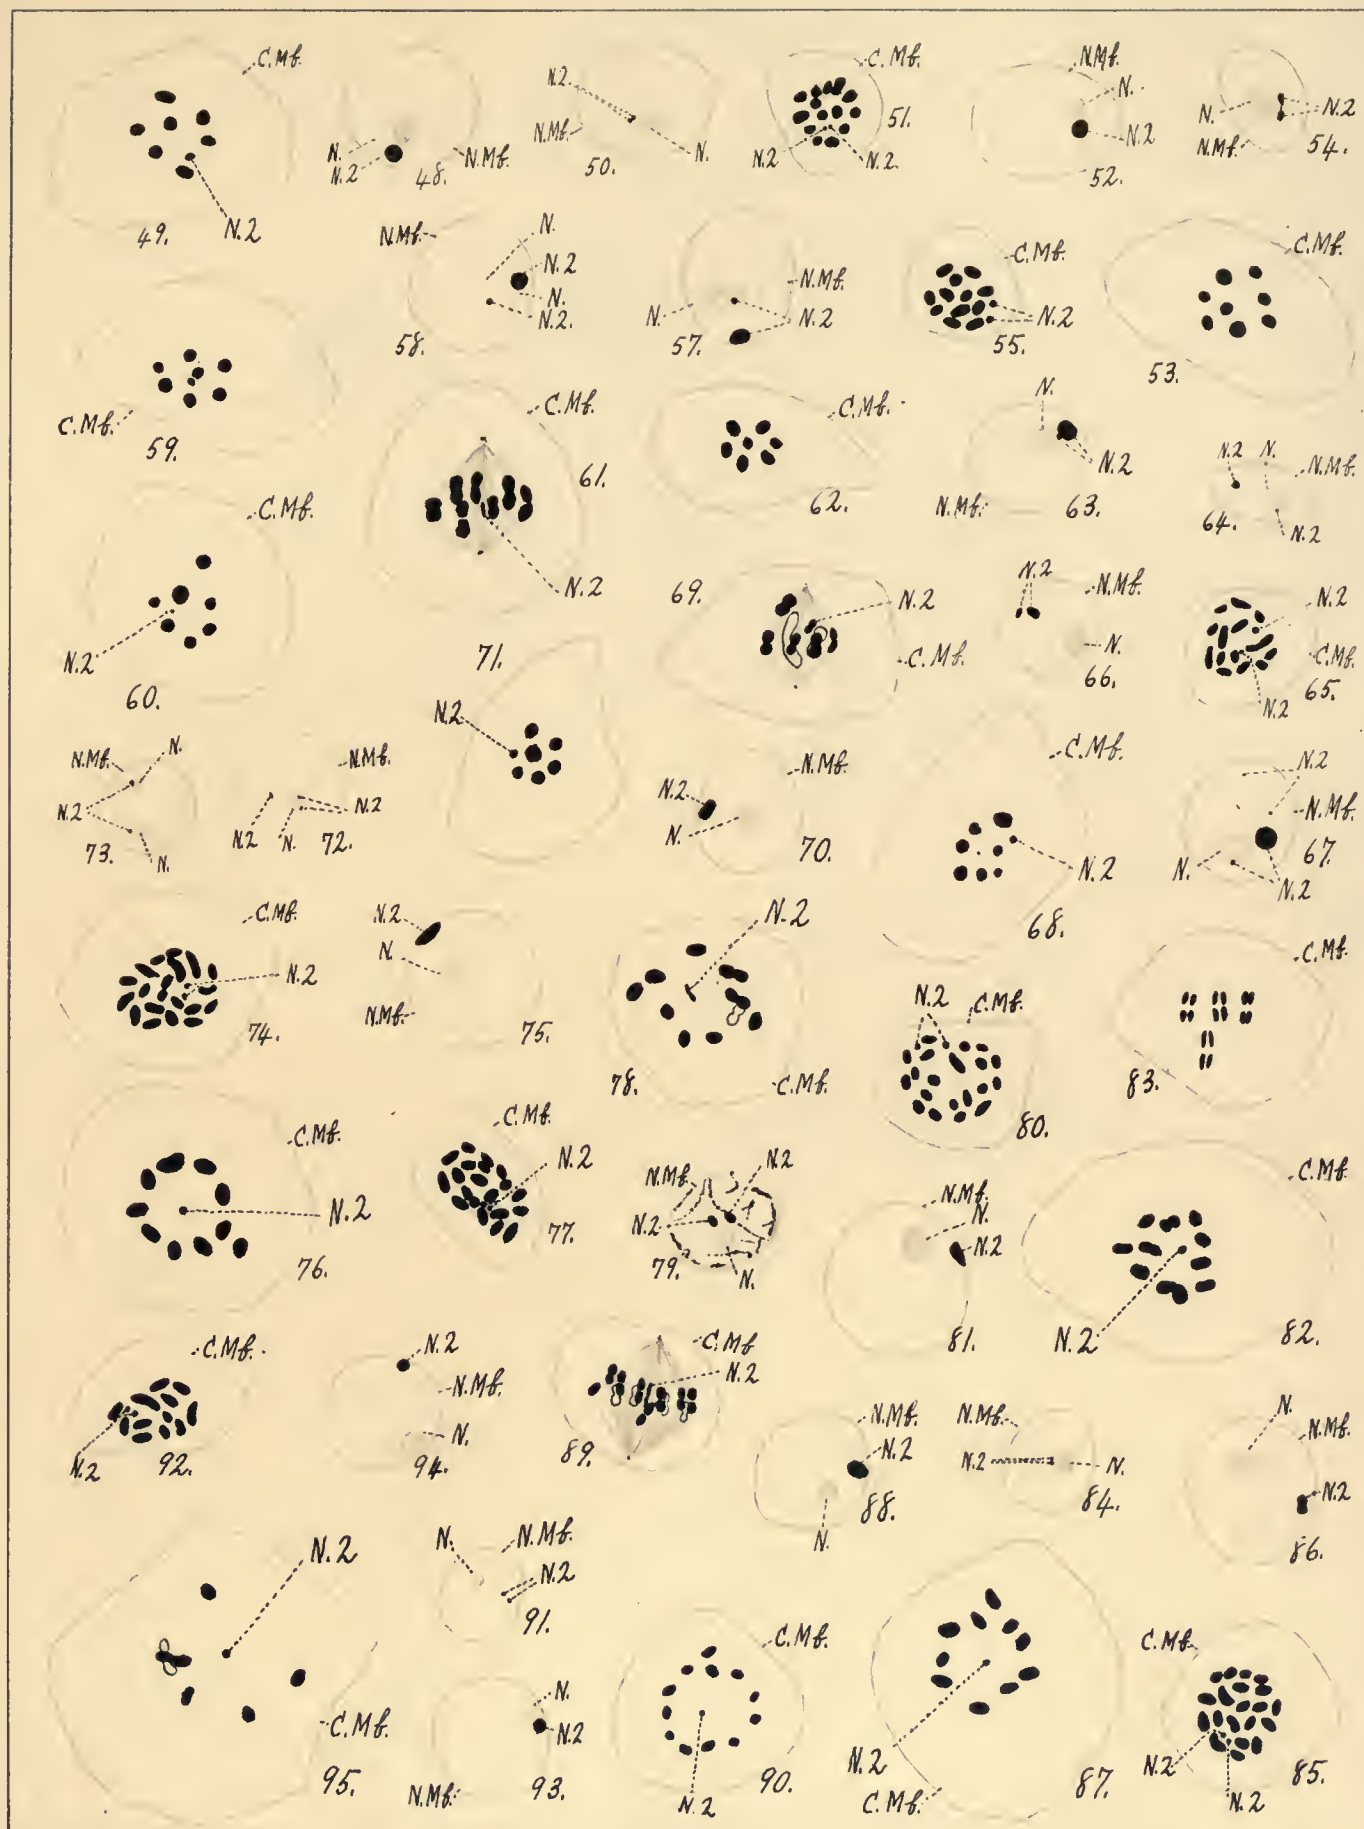 C.Mb.
N.
N.2
48.
N.Mb.
49.
N.2
N.2.
N.Mb.
50.
N.
C.Mb.
51.
N.2
N.2.
N.Mb.
N.
N.2
52.
N.
N.2
N.Mb.
54.
N.Mb.
N.
N.2
N.
N.2.
58.
N.
57.
N.Mb.
N.2
C.Mb.
N.2
55.
C.Mb.
53.
C.Mb.
59.
C.Mb.
61.
N.2
C.Mb.
62.
N.
N.2
N.Mb.
63.
N.2
N.
N.Mb.
64.
N.2
C.Mb.
N.2
60.
71.
N.2
69.
N.2
C.Mb.
N.2
N.Mb.
N.
66.
N.2
C.Mb.
65.
N.2
N.Mb.
N.
N.2
73.
N.
N.Mb.
N.2
N.2
N.
72.
N.Mb.
N.2
N.
70.
C.Mb.
N.2
68.
N.2
N.Mb.
67.
N.
N.2
C.Mb.
N.2
74.
N.2
N.
N.Mb.
75.
N.2
78.
C.Mb.
N.2
C.Mb.
80.
C.Mb.
83.
C.Mb.
N.2
76.
C.Mb.
N.2
77.
N.Mb.
N.2
N.2
79.
N.
N.Mb.
N.
N.2
81.
C.Mb.
N.2
82.
C.Mb.
N.2
92.
N.2
N.Mb.
N.
94.
C.Mb
N.2
89.
N.Mb.
N.2
88.
N.
N.Mb.
N.2
N.
84.
N.
N.Mb.
N.2
86.
N.2
C.Mb.
95.
N.
N.Mb.
N.2
91.
N.
N.2
N.Mb.
93.
C.Mb.
90.
N.2
N.2
C.Mb.
87.
C.Mb.
N.2
N.2
85.